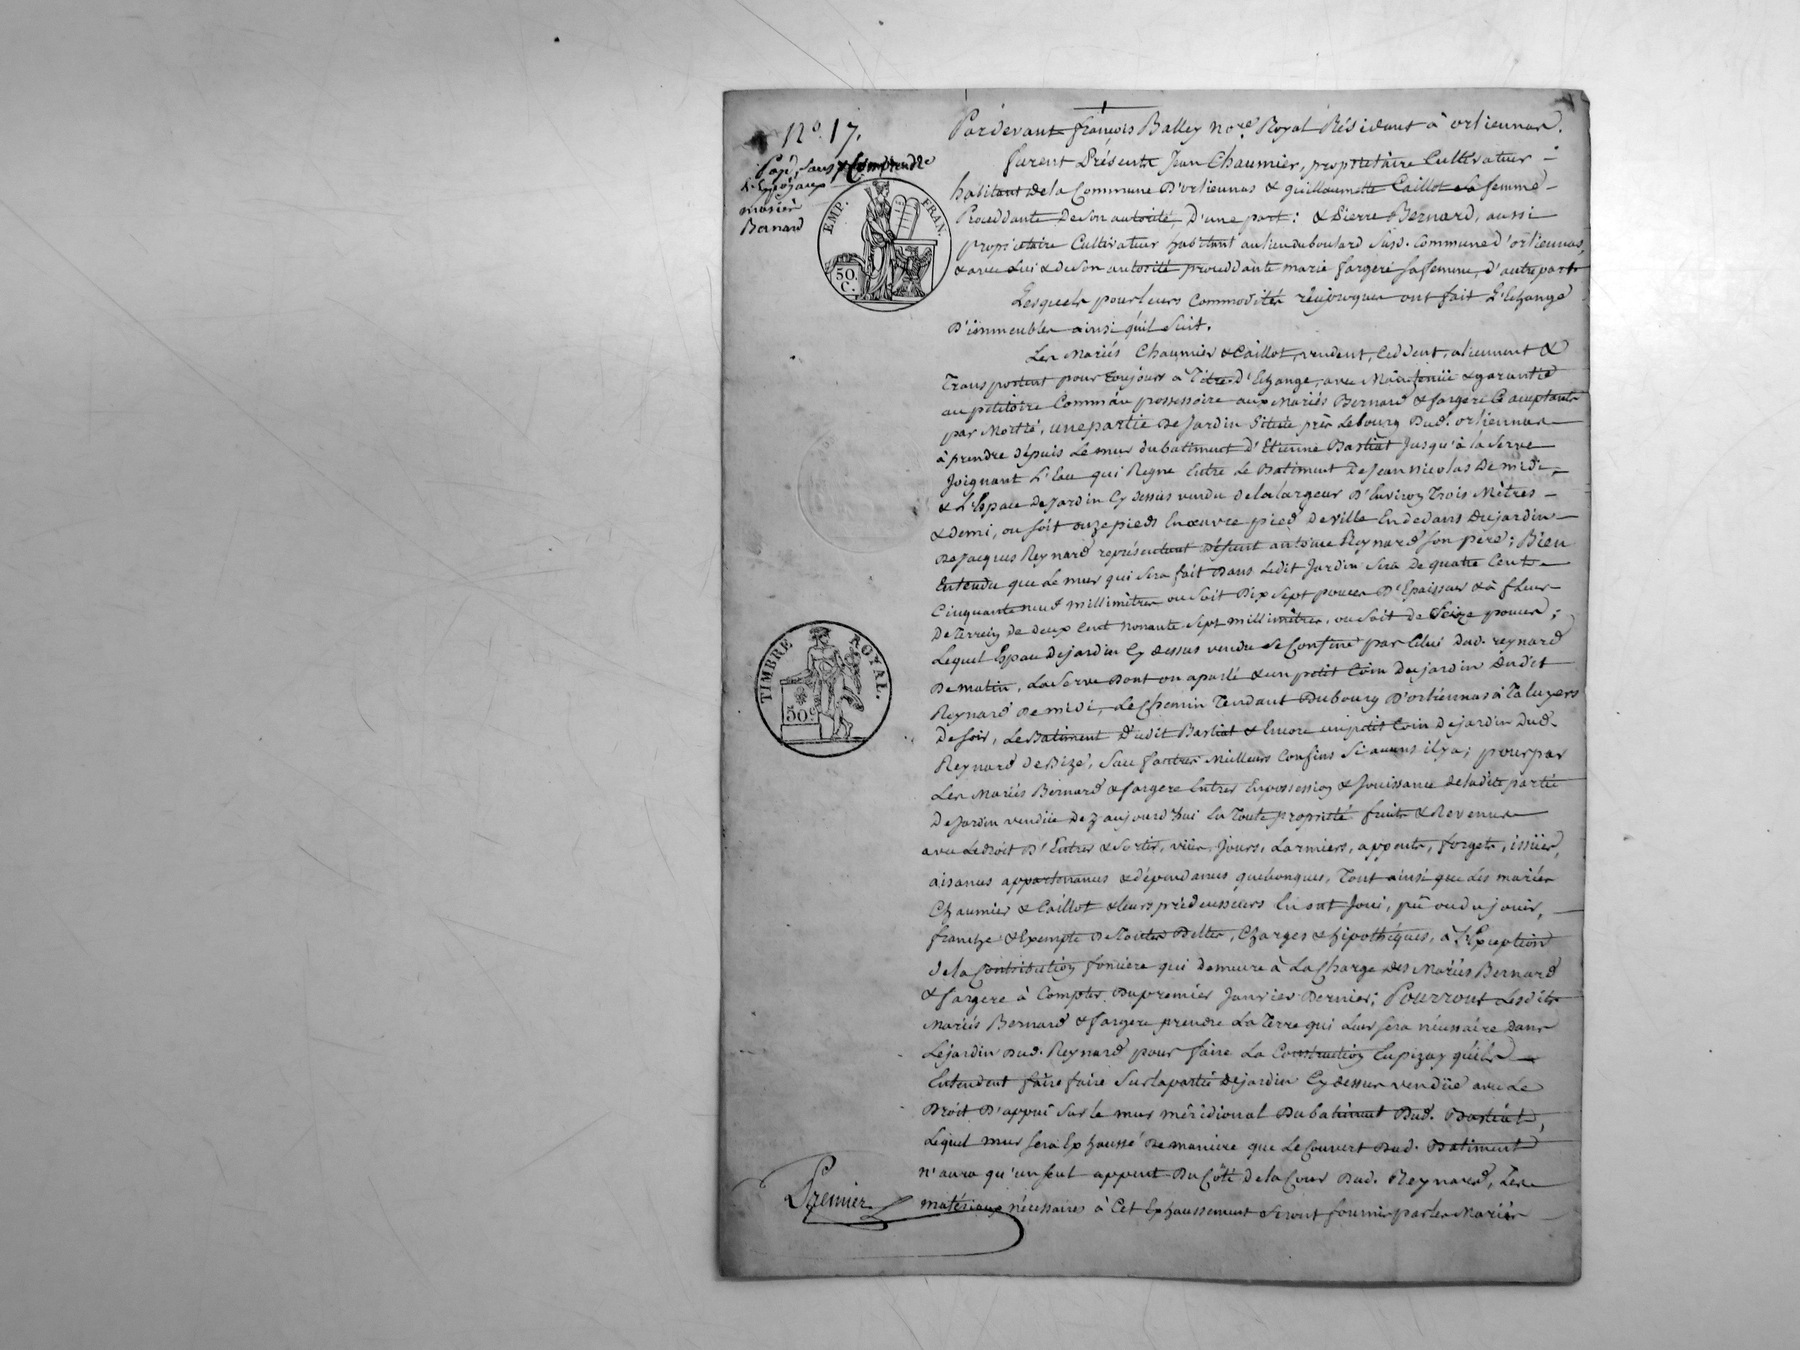 N.º 17.
Expé, sans y Comprendre
mariés
Bernard
EMP. FRAN.
50. C.
TIMBRE ROYAL.
50 c
Premier
Pardevant françois Balley No.re Royal Résidant à orliennas.
furent Présents Jean Chaumier, propriétaire Cultivateur
habitant de la Commune D'orliennas & guillaumette Caillot sa femme
Proceddante De Son autorité, D'une part; & Pierre Bernard, aussi
propriétaire Cultivateur habitant au lieu du boulard Susd. Commune d'orliennas,
& avec Lui & de Son autorité proceddante marie fargere sa femme, d'autre part
Lesquels pour leurs Commodités réciproques ont fait L'Echange
D'immeubles ainsi qu'il Suit.
Les Mariés Chaumier & Caillot, vendent, Ceddent, alienent &
Transportent pour toujours à Titre d'Echange, avec Maintenüe & garantie
au petitoire Comm'au possessoire aux Mariés Bernard & fargere Ce acceptants
par Moitié, une partie De Jardin Située près Le bourg Dud. orliennas
à prendre dépuis Le mur du batiment d'Etienne Bastiat Jusqu'à la Serve
Joignant L'Eau qui Regne Entre Le Batiment De Jean Nicolas De midi,
& L'Espace De Jardin Cy dessus vendu de la largeur D'Environ Trois Mêtres
& demi, ou soit onze pieds En œuvre pied de ville En dedans Du jardin
De Jacques Reynard représentant Défunt antoine Reynard Son père; Bien
Entendu que Le mur qui Sera fait Dans Ledit Jardin Sera De quatre Cent
Cinquante neuf millimêtres ou Soit Dix Sept pouces D'Epaisseur & à fleur
De Terrein de deux Cent nonante Sept millimêtres, ou Soit de Seize pouces;
Lequel Espace De jardin Cy dessus vendu Se Confine par Celui Dud. reynard
De matin, La Serve Dont on a parlé & un petit Coin De jardin Dudit
Reynard De midi, Le Chemin Tendant Du bourg D'orliennas à Taluyers
De Soir, Le Batiment Dudit Bastiat & Encore un petit Coin De jardin Dud.
Reynard De Bize, Sauf autres Meilleurs Confins Si aucuns il y a; pour par
Les Mariés Bernard & fargere Entrer En possession & Jouissance De ladite partie
De Jardin vendüe Dez aujourd'hui En Toute propriété fruits & Revenus
avec Le Droit D'Entrer & Sortir, vües, Jours, Larmiers, appents, forgets, issües,
aisances appartenances & dépendances quelconques, Tout ainsi que Les mariés
Chaumier & Caillot & leurs prédecesseurs En ont Joui, pû ou du jouir,
franche & Exempte De Toutes Dettes, Charges & hipothéques, à L'Exception
de la Contribution fonciere qui demeure à La Charge Des Mariés Bernard
& fargere à Compter Du premier Janvier Dernier; Pourront Lesdits
Mariés Bernard & fargere prendre La Terre qui Leur Sera nécessaire dans
Le jardin Dud. Reynard pour faire La Construction En pizay qu'ils
Entendent faire faire Sur la partie De jardin Cy dessus vendüe avec Le
Droit D'appui Sur le mur méridional Du batiment Dud. Bastiat,
Lequel mur Sera Exhaussé De maniere que Le Couvert Dud. Batiment
n'aura qu'un Seul appent Du Côté de la Cour Dud. Reynard, Les
matériaux nécessaires à Cet Exhaussement Seront fournis par les Mariés